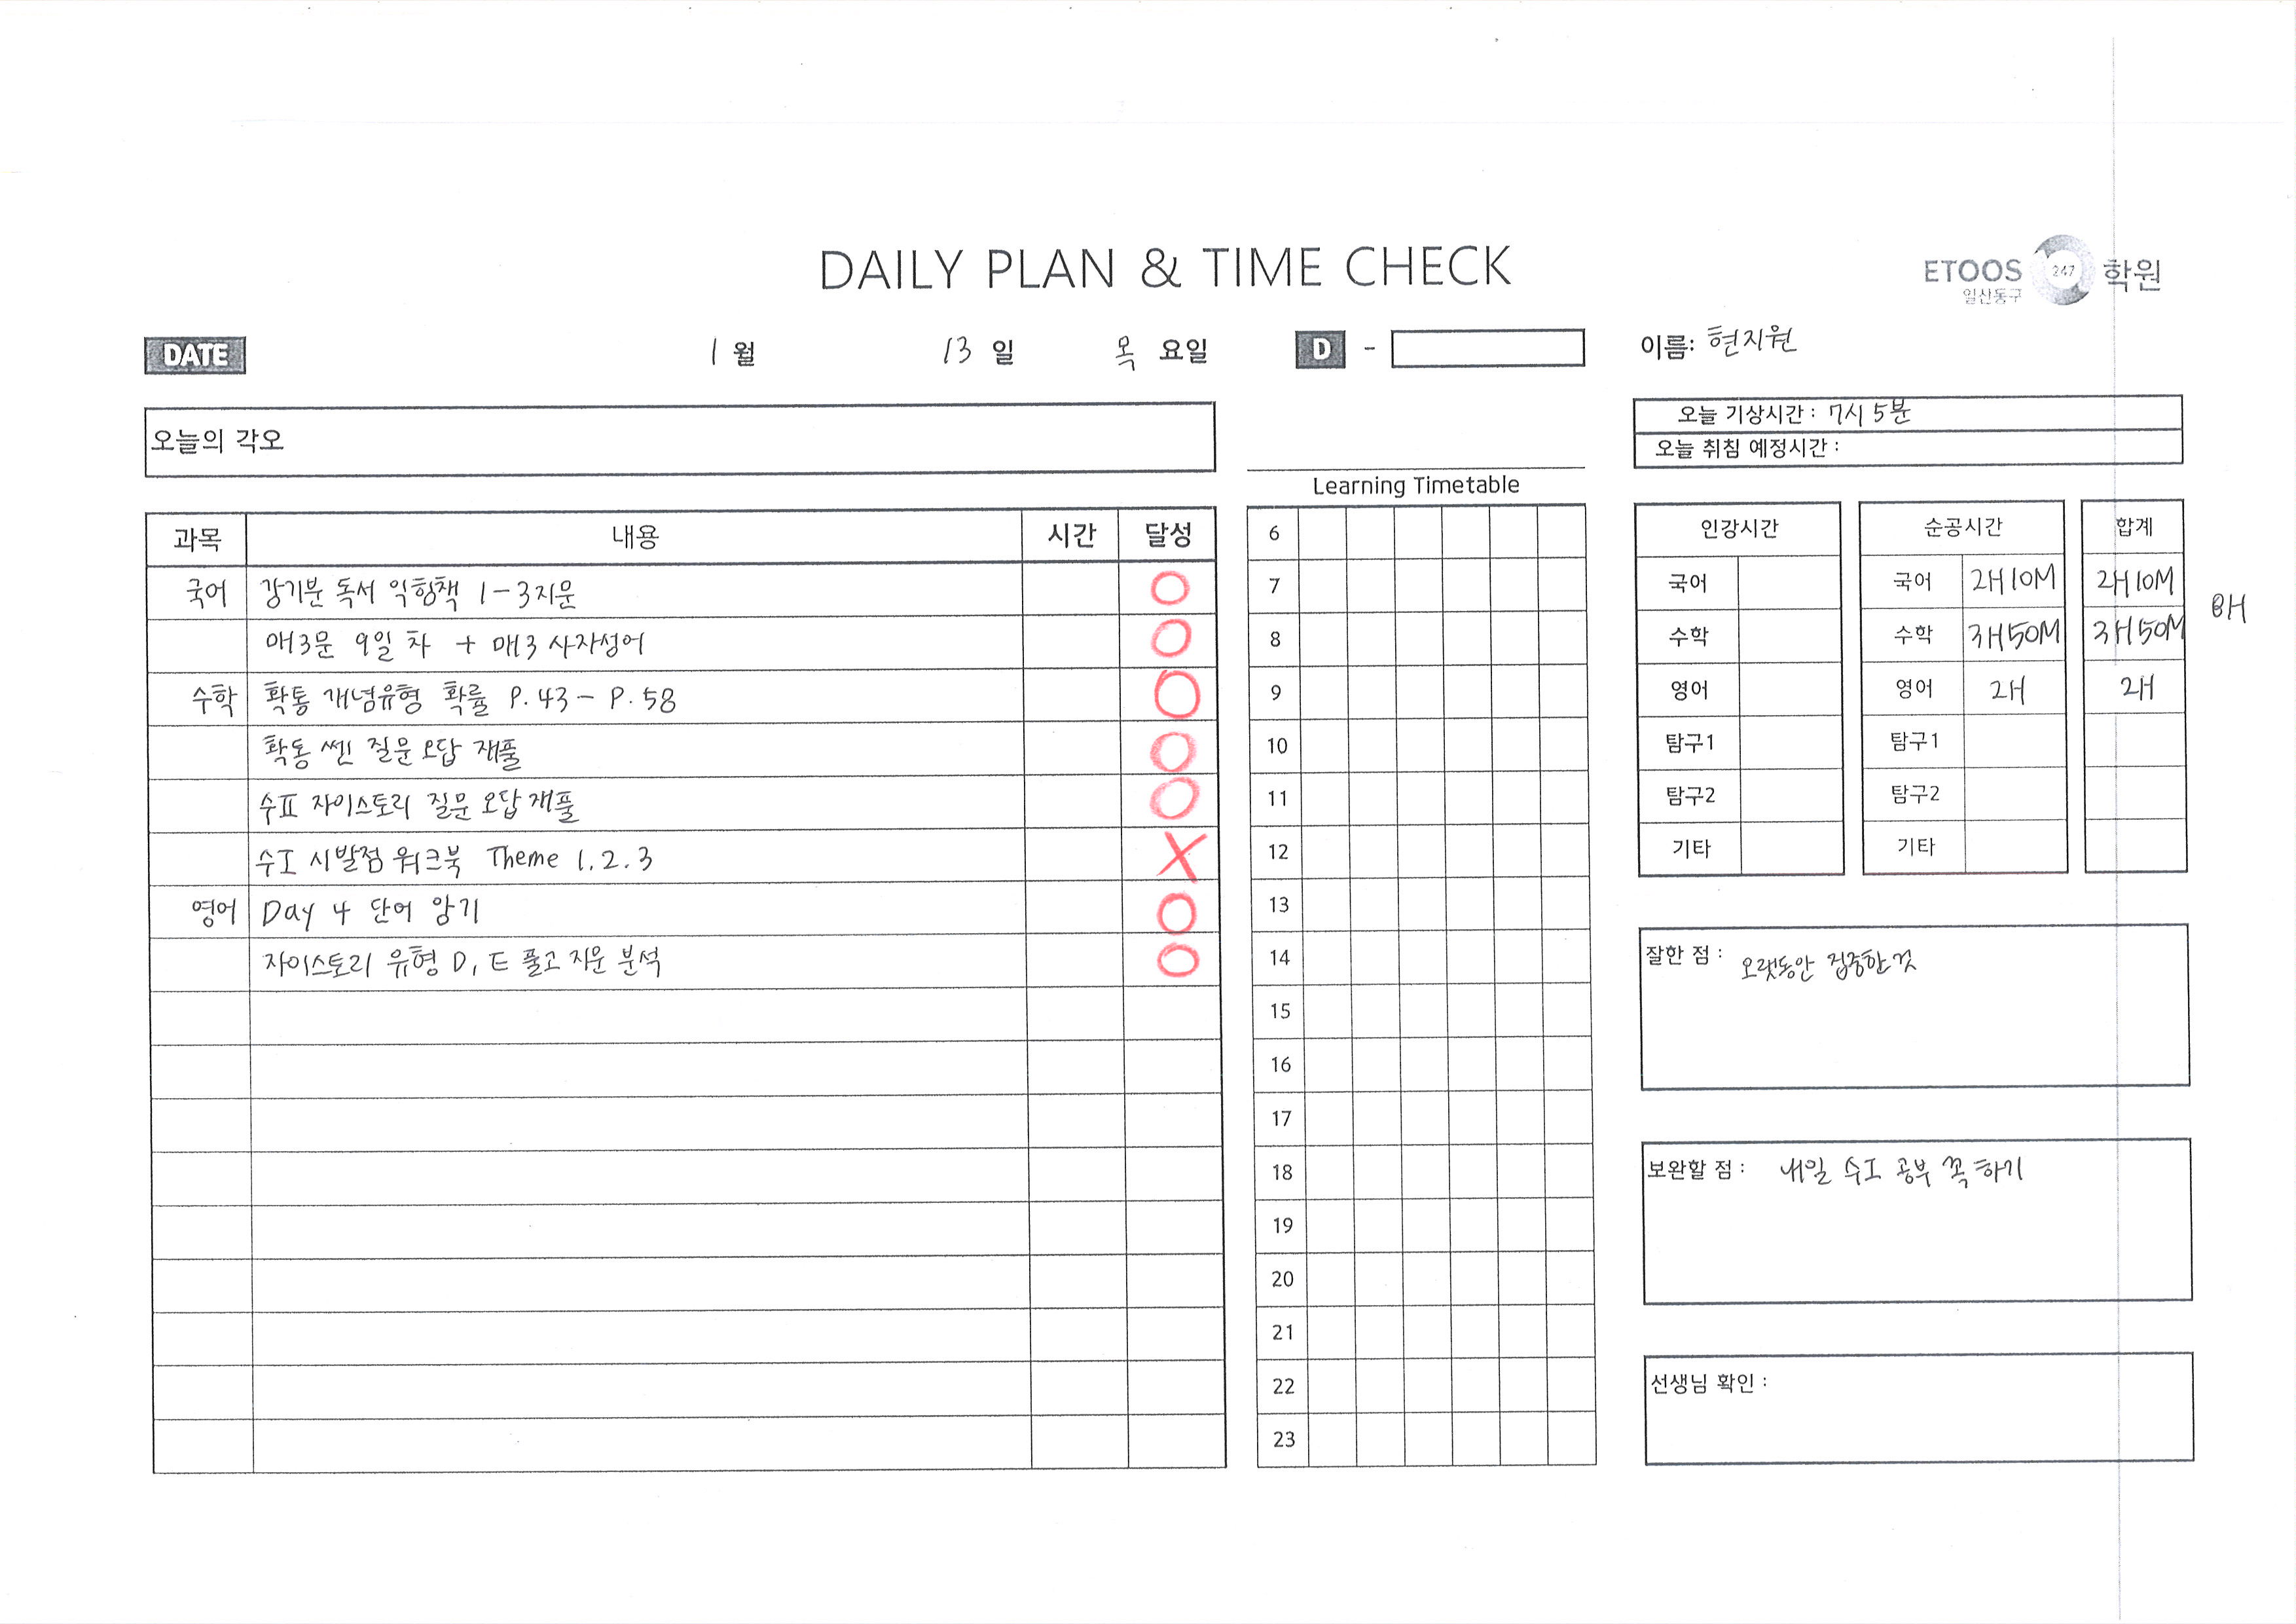 DAILY PLAN & TIME CHECK
ETOOS 247 학원
일산동구
DATE 1 월 13 일 목 요일 D -
이름: 현지원
오늘의 각오
오늘 기상시간 : 7시 5분
오늘 취침 예정시간 :
과목 내용 시간 달성
국어 강기분 독서 익힘책 1-3지문 O
매3문 9일 차 + 매3 사자성어 O
수학 확통 개념유형 확률 P.43 - P.58 O
확통 쎈 질문 오답 재풀 O
수II 자이스토리 질문 오답 재풀 O
수I 시발점 워크북 Theme 1.2.3 X
영어 Day 4 단어 암기 O
자이스토리 유형 D, E 풀고 지문 분석 O
Learning Timetable
6
7
8
9
10
11
12
13
14
15
16
17
18
19
20
21
22
23
인강시간 순공시간 합계
국어 국어 2H10M 2H10M
수학 수학 3H50M 3H50M
8H
영어 영어 2H 2H
탐구1 탐구1
탐구2 탐구2
기타 기타
잘한 점 : 오랫동안 집중한 것
보완할 점 : 내일 수I 공부 꼭 하기
선생님 확인 :